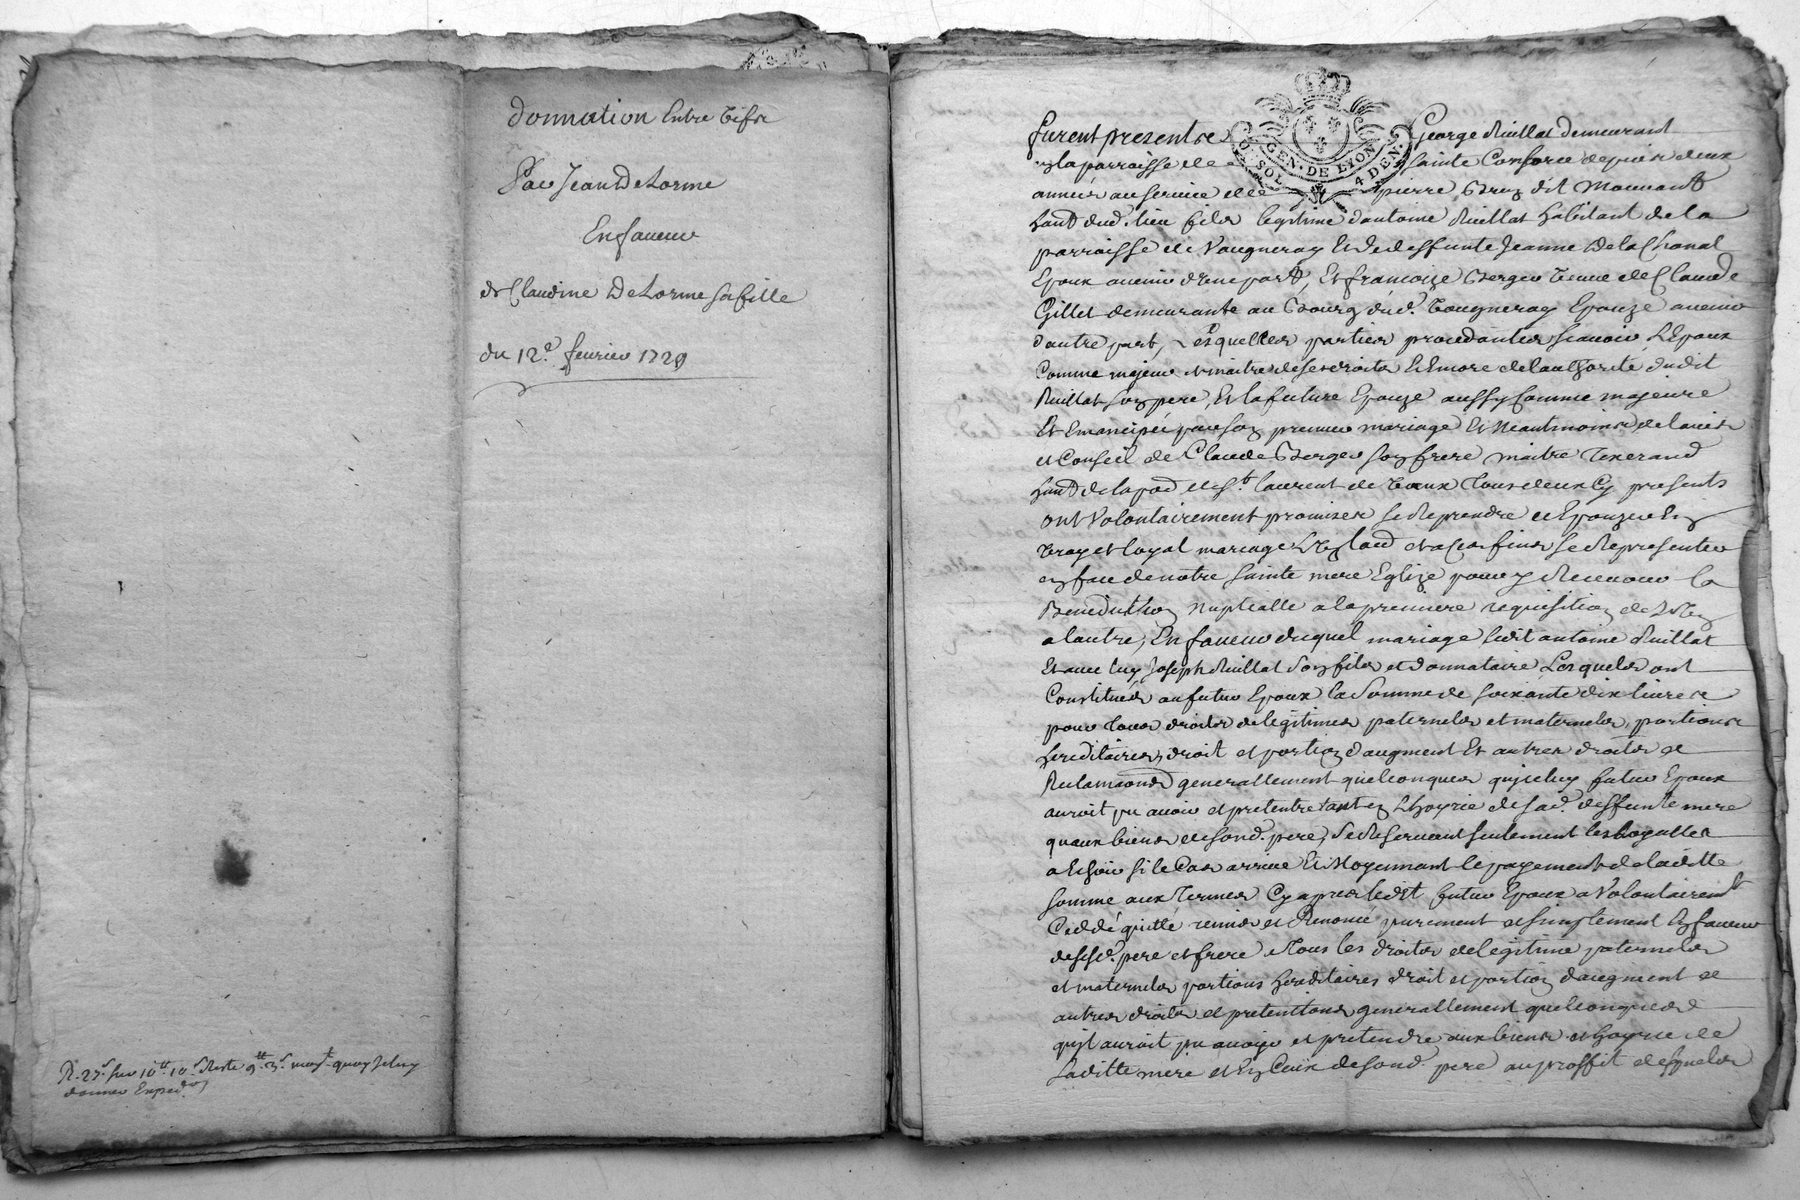 donnation Entre vifs
Par Jean DeLorme
En faveur
de Claudine DeLorme sa fille
du 12e. fevrier 1729
donner Exped.on
GEN. DE LYON
SOL 4 DEN.
furent presents George Ruillat demeurant
en la parroisse de sainte Consorce depuis deux
années au service de pierre dit
hant. dud. lieu fils legitime d'antoine Ruillat habitant de la
parroisse de Vaugneray Et de deffunte Jeanne De la Chanal
Epoux avenir d'une part, Et francoize Berger veuve de Claude
Gillet demeurante au Bourg dud. Vaugneray Epouze avenir
d'autre part, Lesquelles parties procedantes scavoir L'Epoux
Comme majeur et maitre de ses droits Et Encore de l'authorité dudit
Ruillat son pere, Et la future Epouze aussy Comme majeure
Et Emancipée par son premier mariage Et Neantmoins de l'avis
et Conseil de Claude Berger son frere maitre Tixerand
hant. de la pad. de st. laurent de Vaux tous deux Cy presents
ont Volontairement promis de se prendre et Epouzer En
vray et loyal mariage et a ces fins se Representer
en face de notre sainte mere Eglize pour y Recevoir la
Benediction Nuptialle a la premiere requisition de L'un
a l'autre, En faveur duquel mariage ledit antoine Ruillat
Et avec luy Joseph Ruillat son fils et donnataire Lesquels ont
Constitués au futur Epoux la somme de soixante dix livres
pour tous droits de legitimes paternels et maternels, portions
hereditaires, droit et portion d'augment Et autres droits et
generallement quelconques qu'iceluy futur Epoux
auroit pu avoir et pretentre tant En L'hoyrie de sad. deffunte mere
qu'aux biens de sond. pere, se Reservant seulement les loyalles
a Echoir si le Cas arrive Et Moyennant le payement de la ditte
somme aux termes Cy apres ledit futur Epoux a Volontairemt.
Ceddé quitté remis et Renoncé purement et simplement En faveur
desd. pere et frere tous les droits de legitime paternels
et maternels portions hereditaires droit et portion d'augment et
autres droits et pretentions generallement quelconques
qu'il auroit pu avoir et pretendre aux biens et hoyrie de
saditte mere et En Ceux de sond. pere au proffit desquels